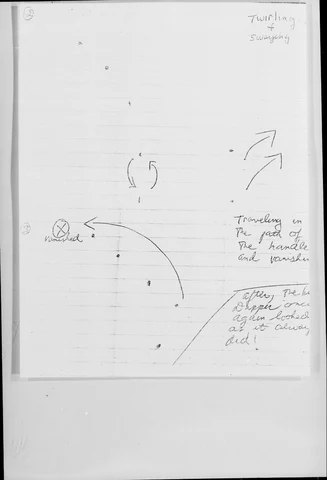 Twirling
+
Swaying
Traveling in
the path of
the handle
and vanish
vanished
after, the
Dipper once
again looked
as it always
did!